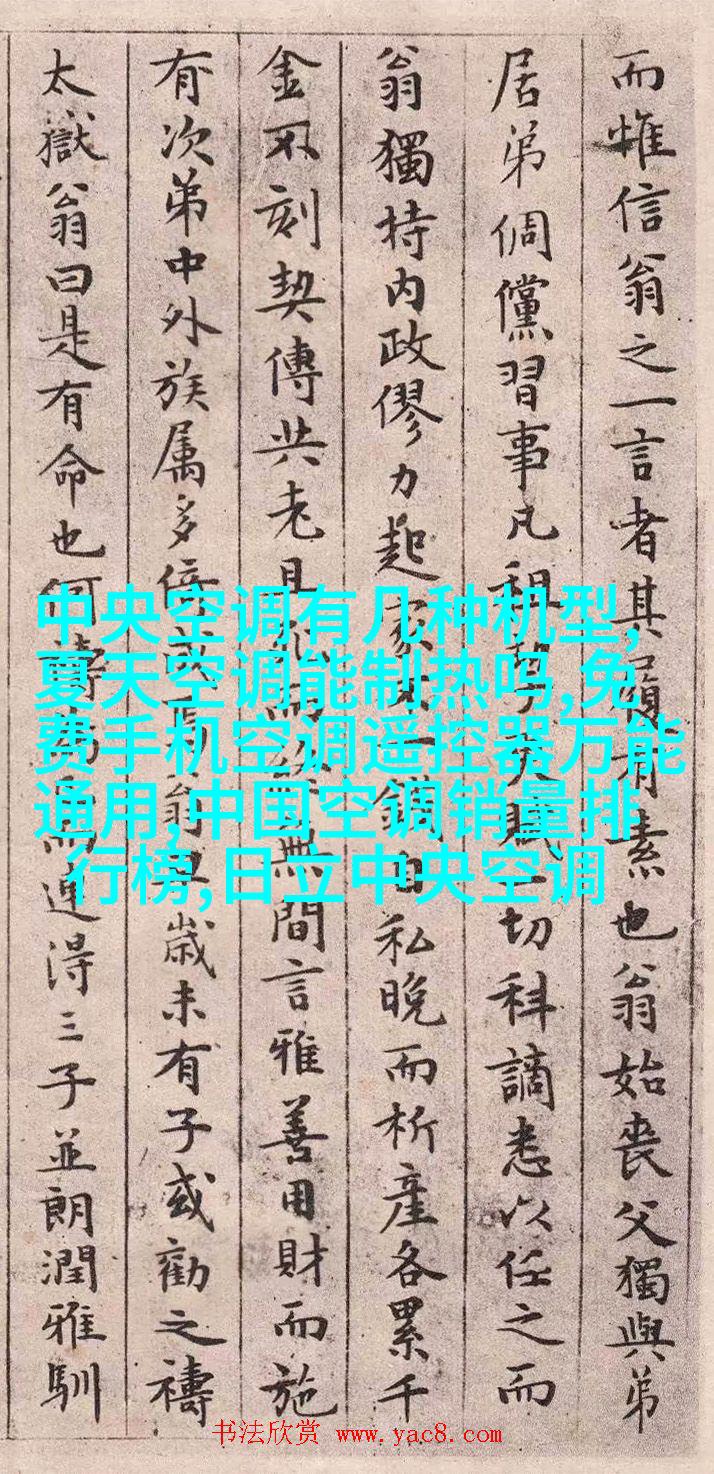 而惟信翁之一言者其有素也翁始喪父獨與弟
居弟倜儻習事凡租賦一切科謫悉以任之而
翁獨持内政僇力起家一錢自私晚而析產各累千
金不刻契傳共老且而無間言雅善用財而施
有次第中外族属多翁歲未有子或勸之禱
太獄翁曰是有命也何禱而連得三子並朗潤雅馴
中央空调有几种机型,
夏天空调能制热吗,免
费手机空调遥控器万能
通用,中国空调销量排
行榜,日立中央空调
书法欣赏 www.yac8.com